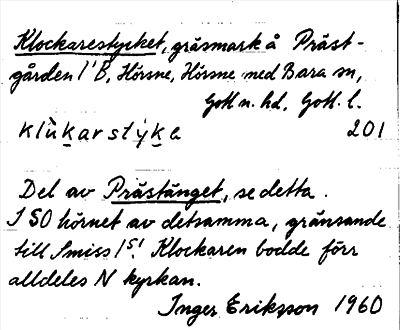 Klockarestycket, gräsmark å Präst-
gården 1'B, Hörsne, Hörsne med Bara sn,
Gotl n. hd, Gotl. l.
klùkarstýka 201
Del av Prästänget, se detta.
I SO hörnet av detsamma, gränsande
till Smiss 1⁵! Klockaren bodde förr
alldeles N kyrkan.
Inger Eriksson 1960